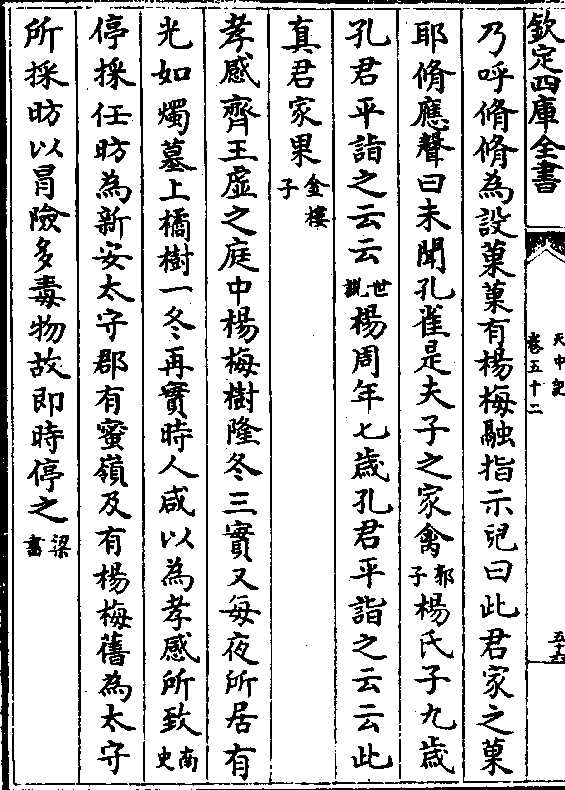 欽定四庫全書
天中記
卷五十二
五十六
乃呼脩脩為設菓菓有楊梅融指示兒曰此君家之菓
耶脩應聲曰未聞孔雀是夫子之家禽郭子楊氏子九歲
孔君平詣之云云世說楊周年七歲孔君平詣之云云此
真君家果金樓子
孝感齊王虛之庭中楊梅樹隆冬三實又每夜所居有
光如燭墓上橘樹一冬再實時人咸以為孝感所致南史
停採任昉為新安太守郡有蜜嶺及有楊梅舊為太守
所採昉以冒險多毒物故即時停之梁書